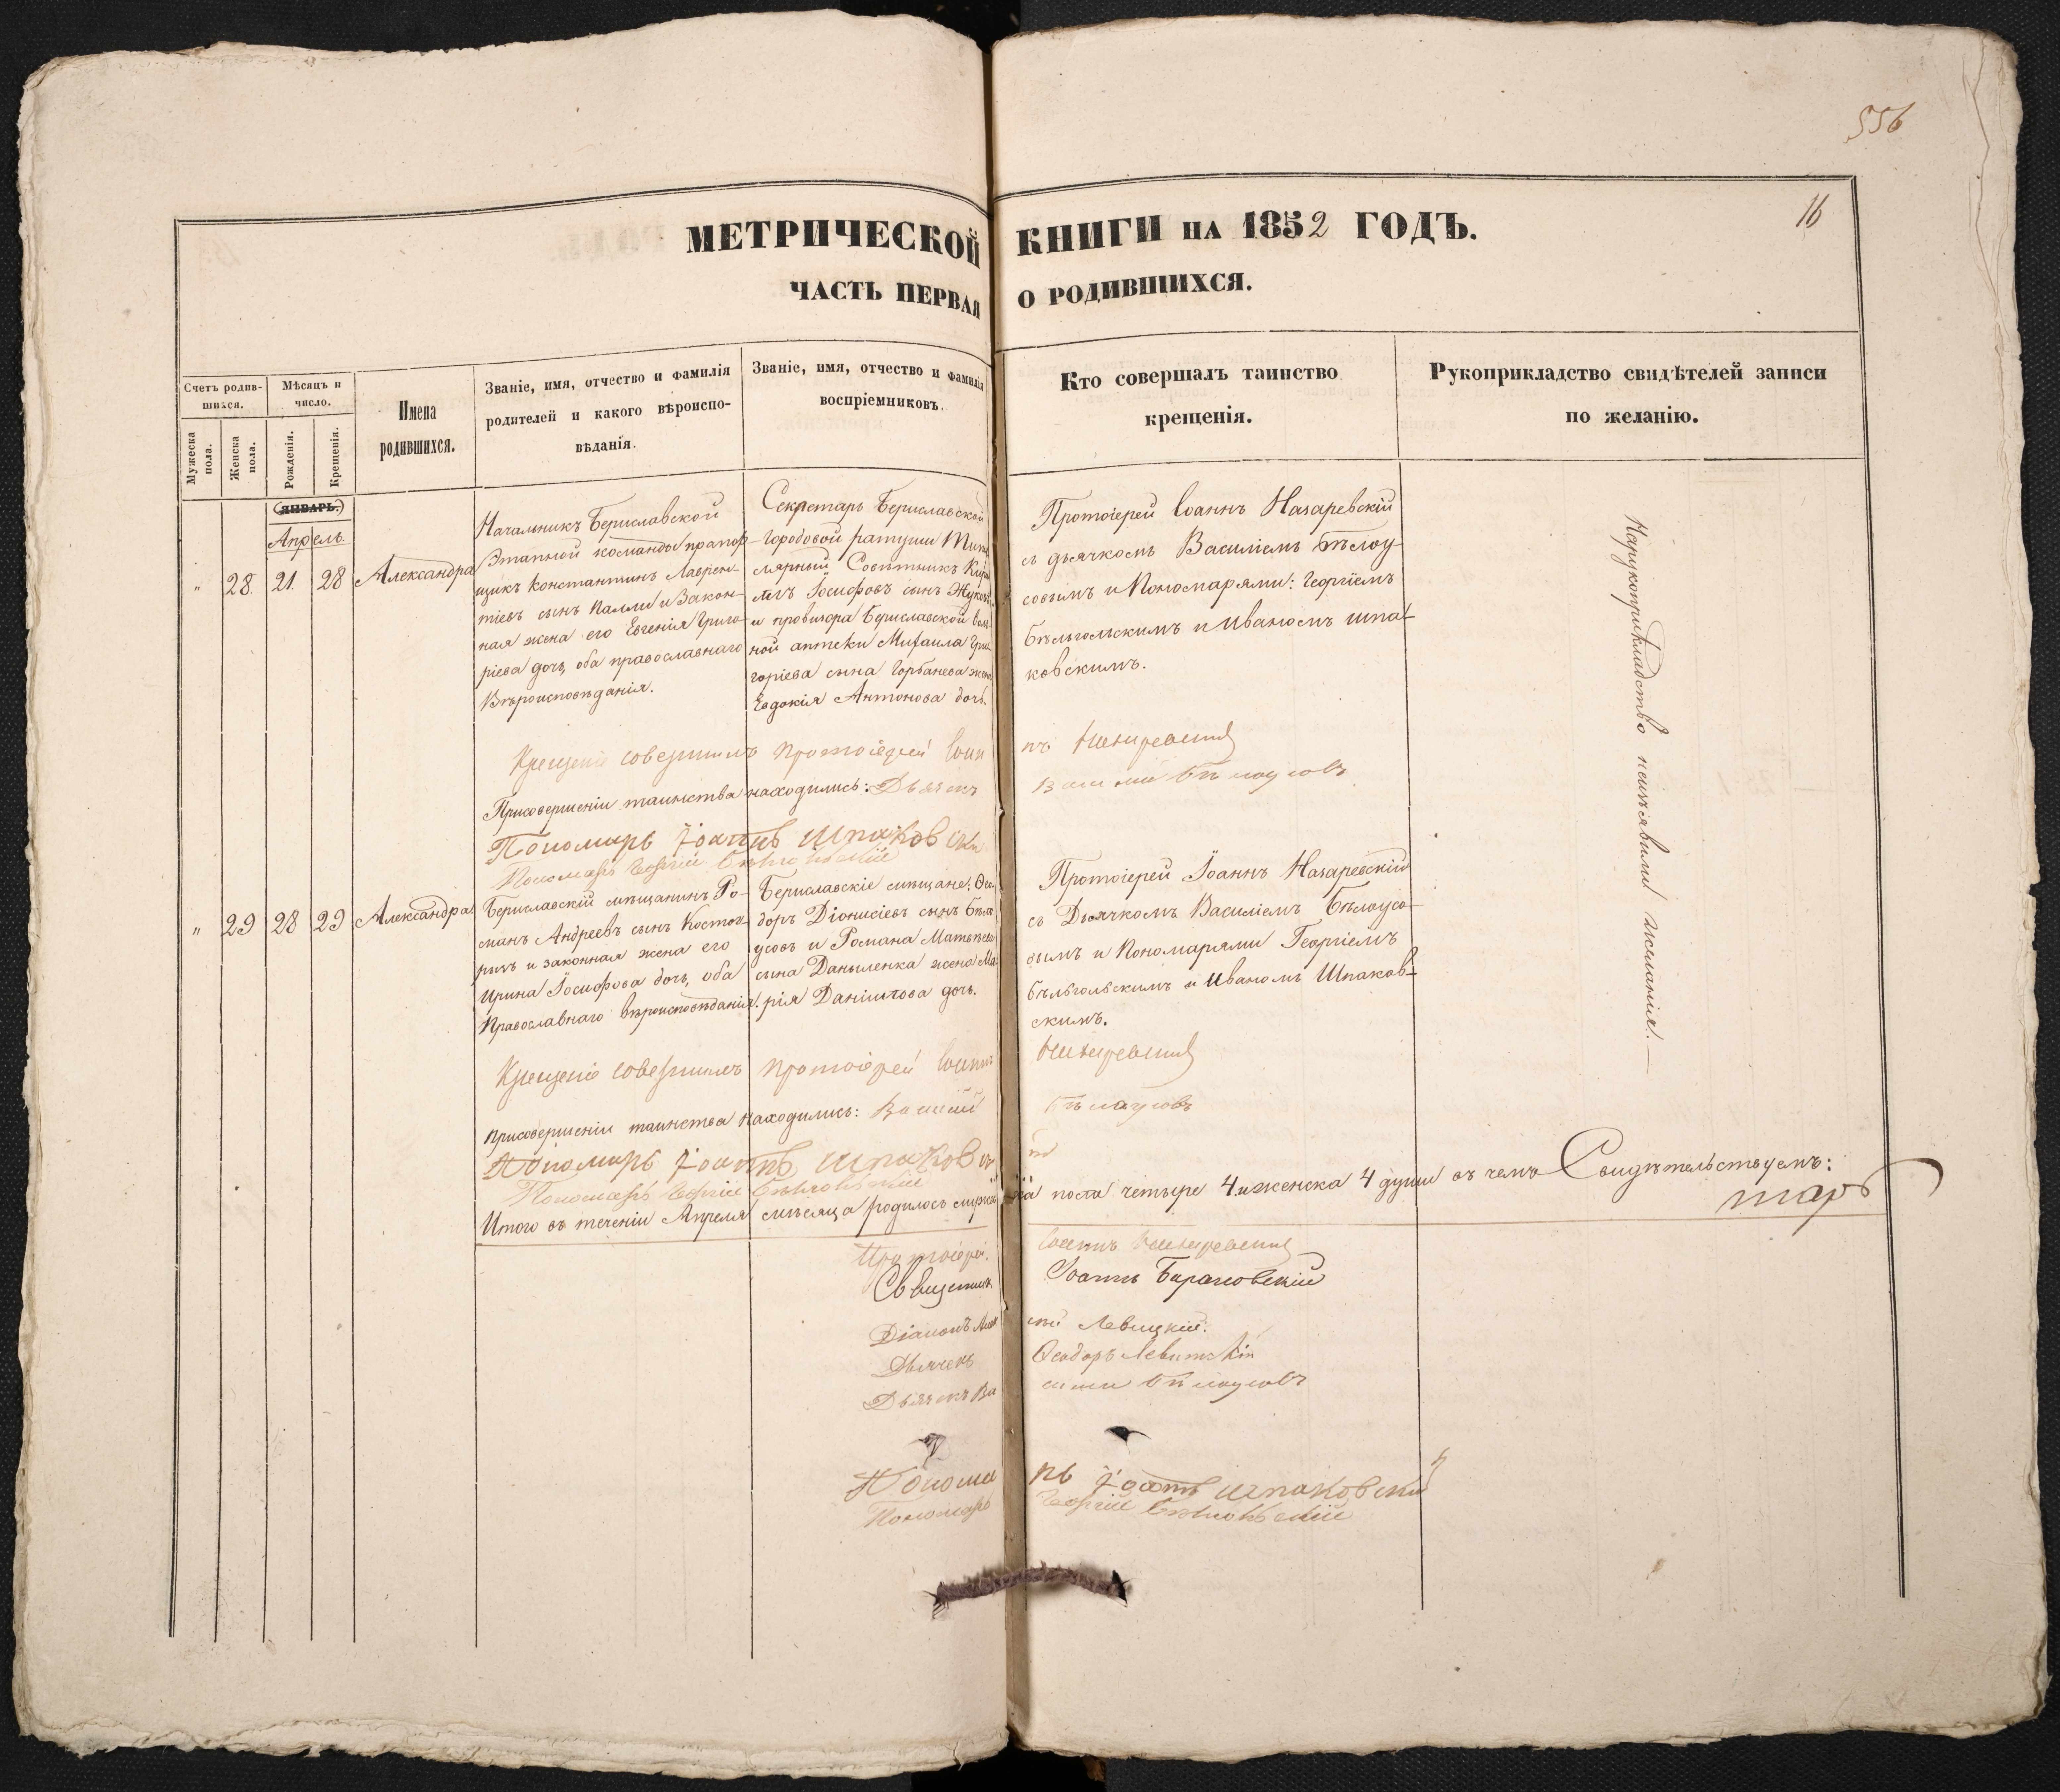 556
16
МЕТРИЧЕСКОЙ КНИГИ НА 1852 ГОДЪ.
ЧАСТЬ ПЕРВАЯ О РОДИВШИХСЯ.
Счетъ родив-
шихся.
Мужеска
пола.
Женска
пола.
Мѣсяцъ и
число.
Рожденія.
Крещенія.
Имена
родившихся.
Званіе, имя, отчество и фамилія
родителей и какого вѣроиспо-
вѣданія.
Званіе, имя, отчество и фамилія
воспріемниковъ.
Кто совершалъ таинство
крещенія.
Рукоприкладство свидѣтелей записи
по желанію.
(ЯНВАРЬ.)
Апрѣль
" 28. 21. 28 Александра
Начальникъ Бериславской
Этапной команды прапор-
щикъ Константинъ Лаврен-
тіевъ сынъ Палли и Закон-
ная жена его Евгенія Григо-
ріева дочь, оба православнаго
Вѣроисповѣданія.
Секретарь Бериславской
Городовой ратуши Титу
лярный Совѣтникъ Кири
лъ Іосифовъ сынъ
и провизора Бериславской воль
ной аптеки Михаила Гри
горіева сына Горбанева жена
Евдокія Антонова дочь.
Протоіерей Іоаннъ Назаревскій
съ дьячкомъ Василіемъ Бѣлоу-
совымъ и Пономарями: Георгіемъ
Бѣльгольскимъ и Иваномъ шпа-
ковскимъ.
Нарукоприкладство неизъявили желанія.—
Крещеніе совершилъ протоіерей Іоаннъ Назаревскій
Присовершеніи таинства находились: Дьячекъ Василій Бѣлоусовъ
Пономарь Іоаннъ Шпаковски
Пономарь Георгій
" 29 28 29 Александра
Бериславскій мѣщанинъ Ро-
манъ Андреевъ сынъ
и законная жена его
Ирина Іосифова дочь, оба
Православнаго вѣроисповѣданія.
Бериславскіе мѣщане: Ѳео
доръ Діонисіевъ сынъ Бѣло
усовъ и Романа Матвѣева
сына Даныленка жена Ма
рія Даніилова дочь.
Протоіерей Іоаннъ Назаревскій
съ Дьячкомъ Василіемъ Бѣлоусо-
вымъ и Пономарями Георгіемъ
Бѣльгольскимъ и Иваномъ Шпаков-
скимъ.
Крещеніе совершилъ протоіерей Іоаннъ Назаревскій
присовершеніи таинства находились: Василій Бѣлоусовъ
Пономарь Іоаннъ Шпаковскій
Пономарь Георгій
Итого въ теченіи Апрѣля мѣсяца родилось мужескаго пола четыре 4 и женска 4 души въ чемъ Свидѣтельствуемъ:
Протоіерей Іоаннъ Назаревскій
Священникъ Іоаннъ Барановскій
Діаконъ Левицкій.
Дьячекъ Ѳеодоръ Левитскій
Дьячекъ Василій Бѣлоусовъ
Пономарь Іоаннъ Шпаковскій
Пономарь Георгій